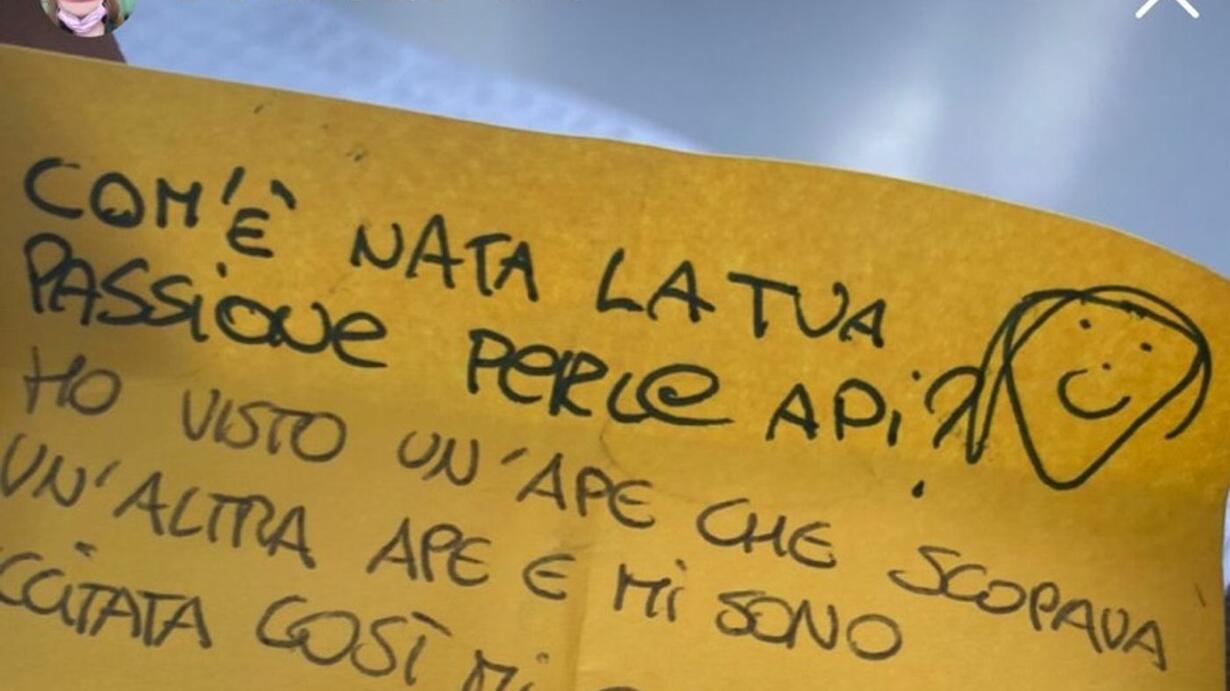 COM'È NATA LA TUA
PASSIONE PER LE API?
HO VISTO UN'APE CHE SCOPAVA
UN'ALTRA APE E MI SONO
CCITATA COSÌ MI